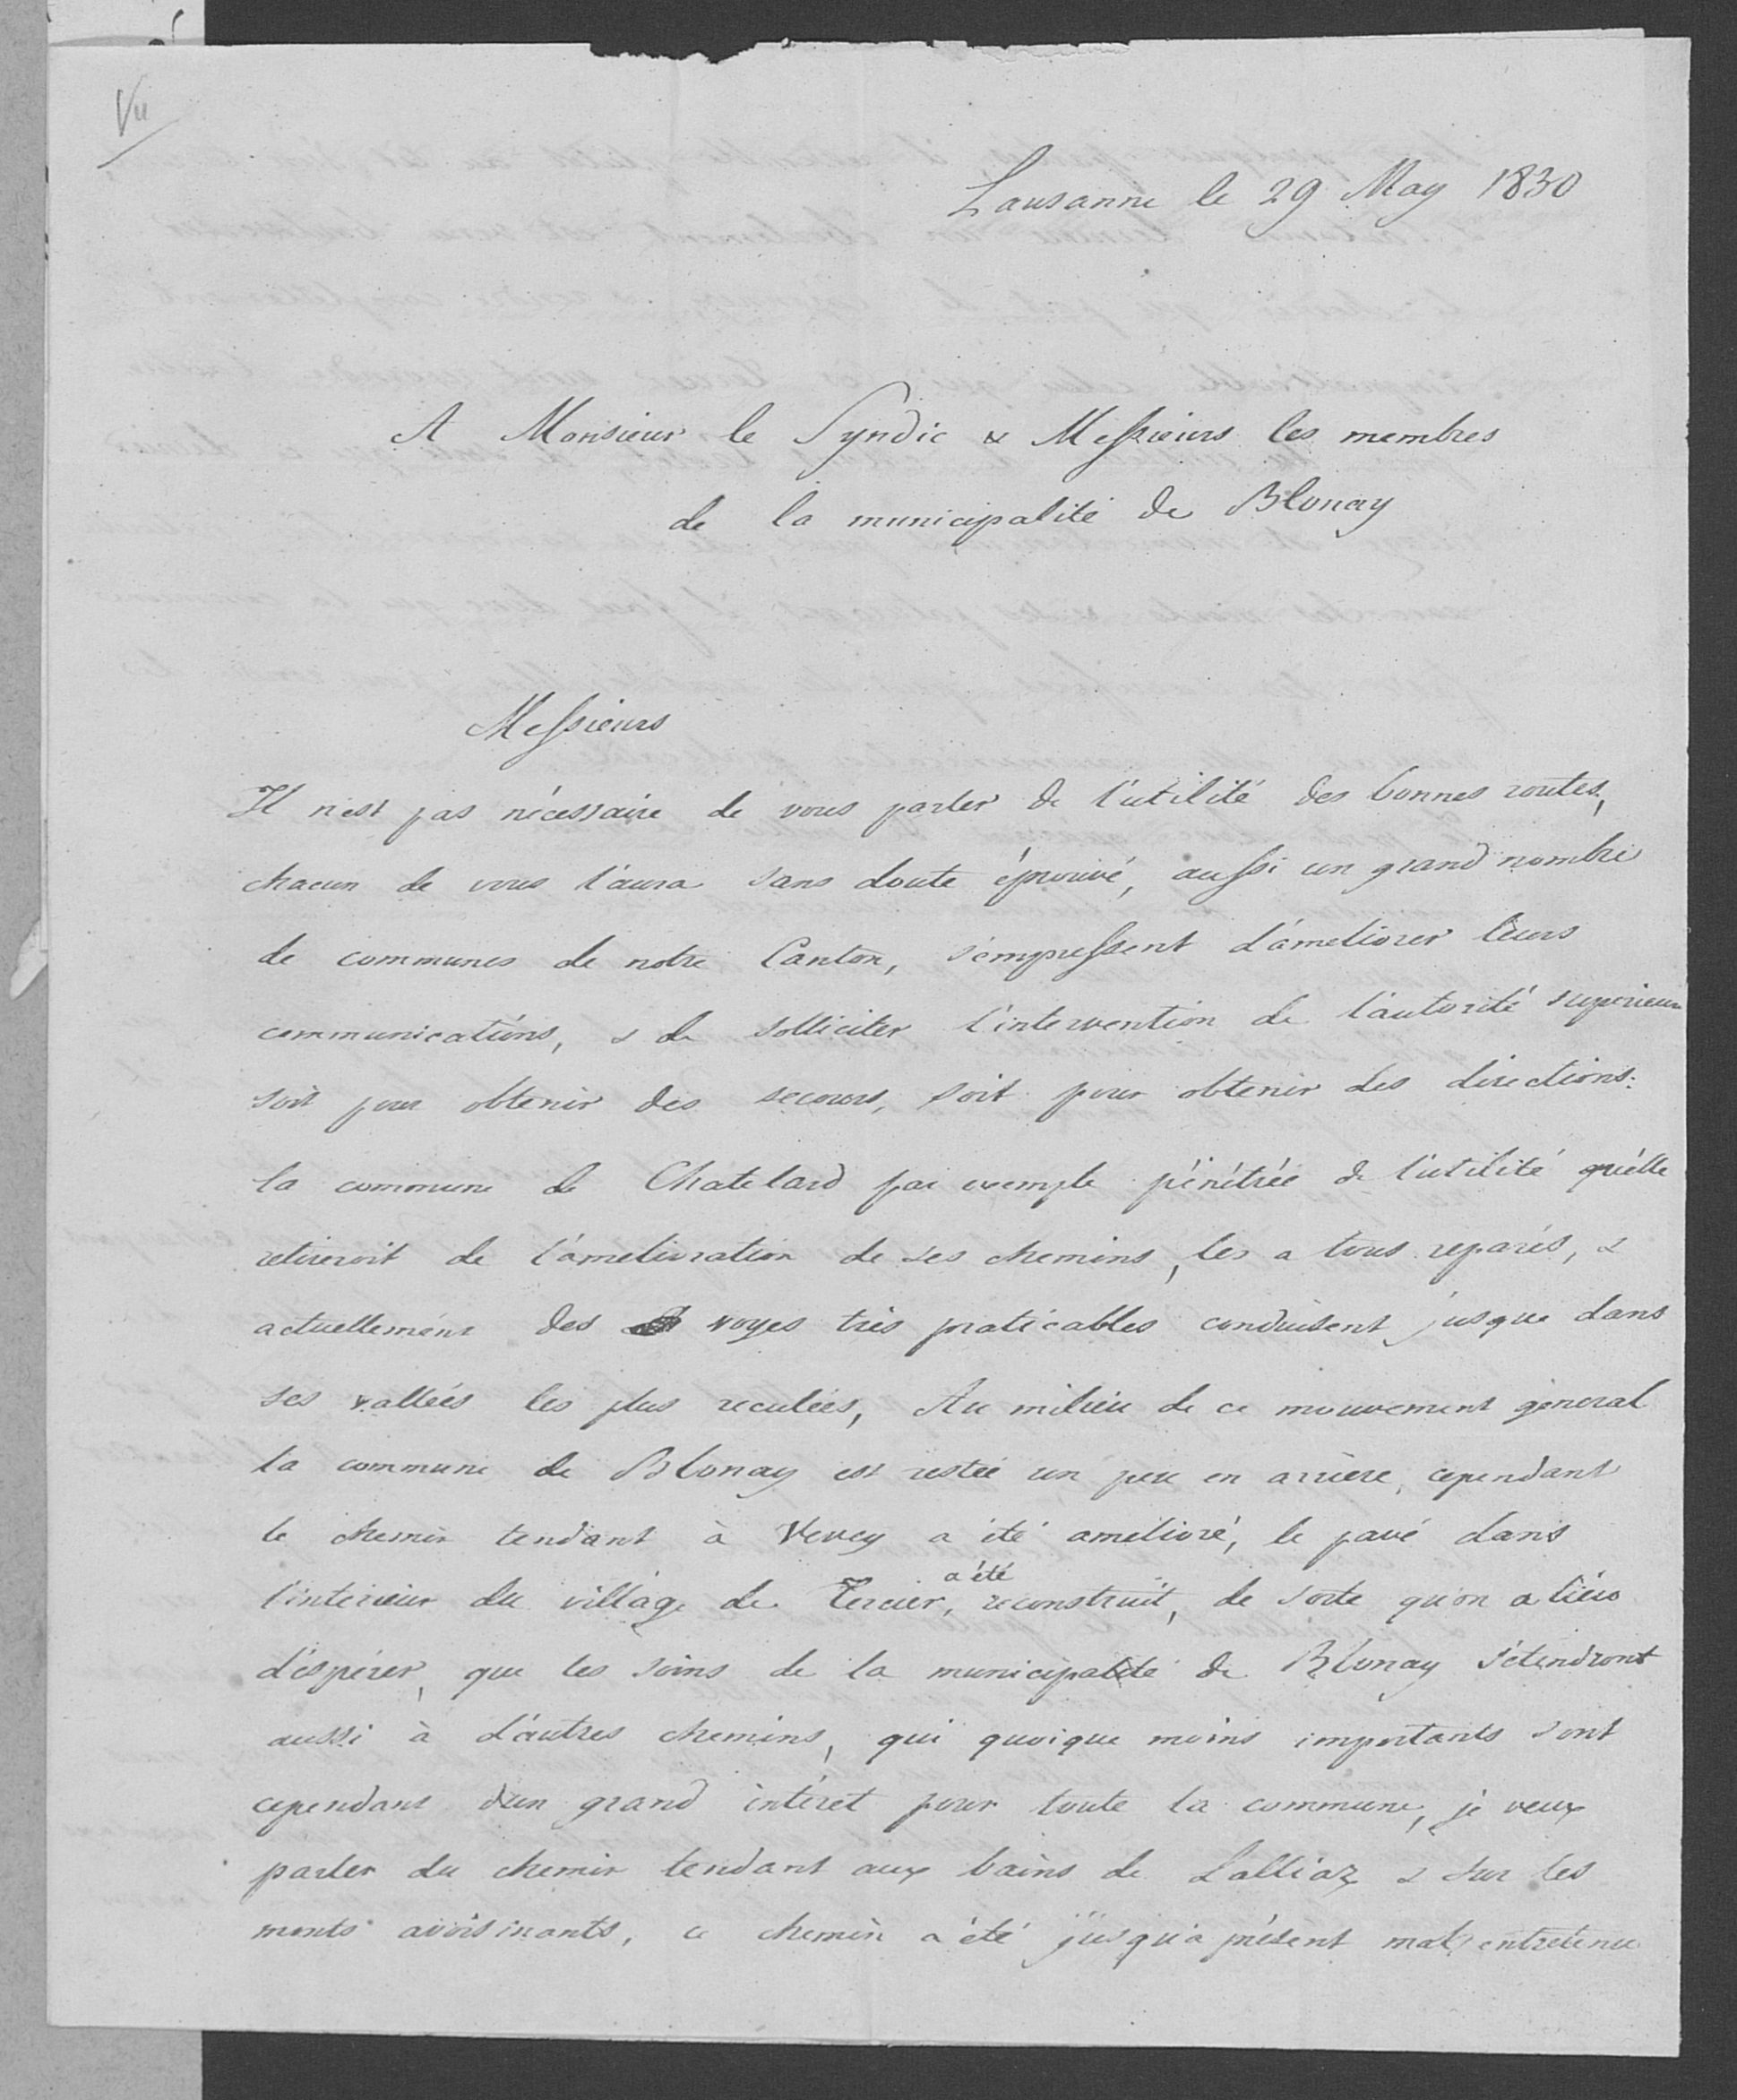 Vu
Lausanne le 29 May 1830
A Monsieur le Syndic & Messieurs les membres
de la municipalité de Blonay
Messieurs
Il n'est pas nécessaire de vous parler de l'utilité des bonnes routes,
chacun de vous l'aura sans doute éprouvé, aussi un grand nombre
de communes de notre Canton, s'empressent d'améliorer leurs
communications, & de solliciter l'intervention de l'autorité superieure
soit pour obtenir des secours, soit pour obtenir des directions:
la commune de Chatelard par exemple pénétrée de l'utilité qu'elle
retireroit de l'amelioration de ses chemins, les a tous reparés, &
actuellement des voyes très praticables conduisent jusque dans
ses vallées les plus reculées, Au milieu de ce mouvement géneral
la commune de Blonay est restée un peu en arrière, cependant
le chemin tendant à Vevey a été amelioré, le pavé dans
l'interieur du village de Tercier, a été reconstruit, de sorte qu'on a lieu
d'espérer, que les soins de la municipalité de Blonay s'étendront
aussi à d'autres chemins, qui quoique moins importants sont
cependant d'un grand intéret pour toute la commune, je veux
parler du chemin tendant aux bains de Lalliaz & sur les
monts avoisinants, ce chemin a été jusqu'à présent mal entretenu